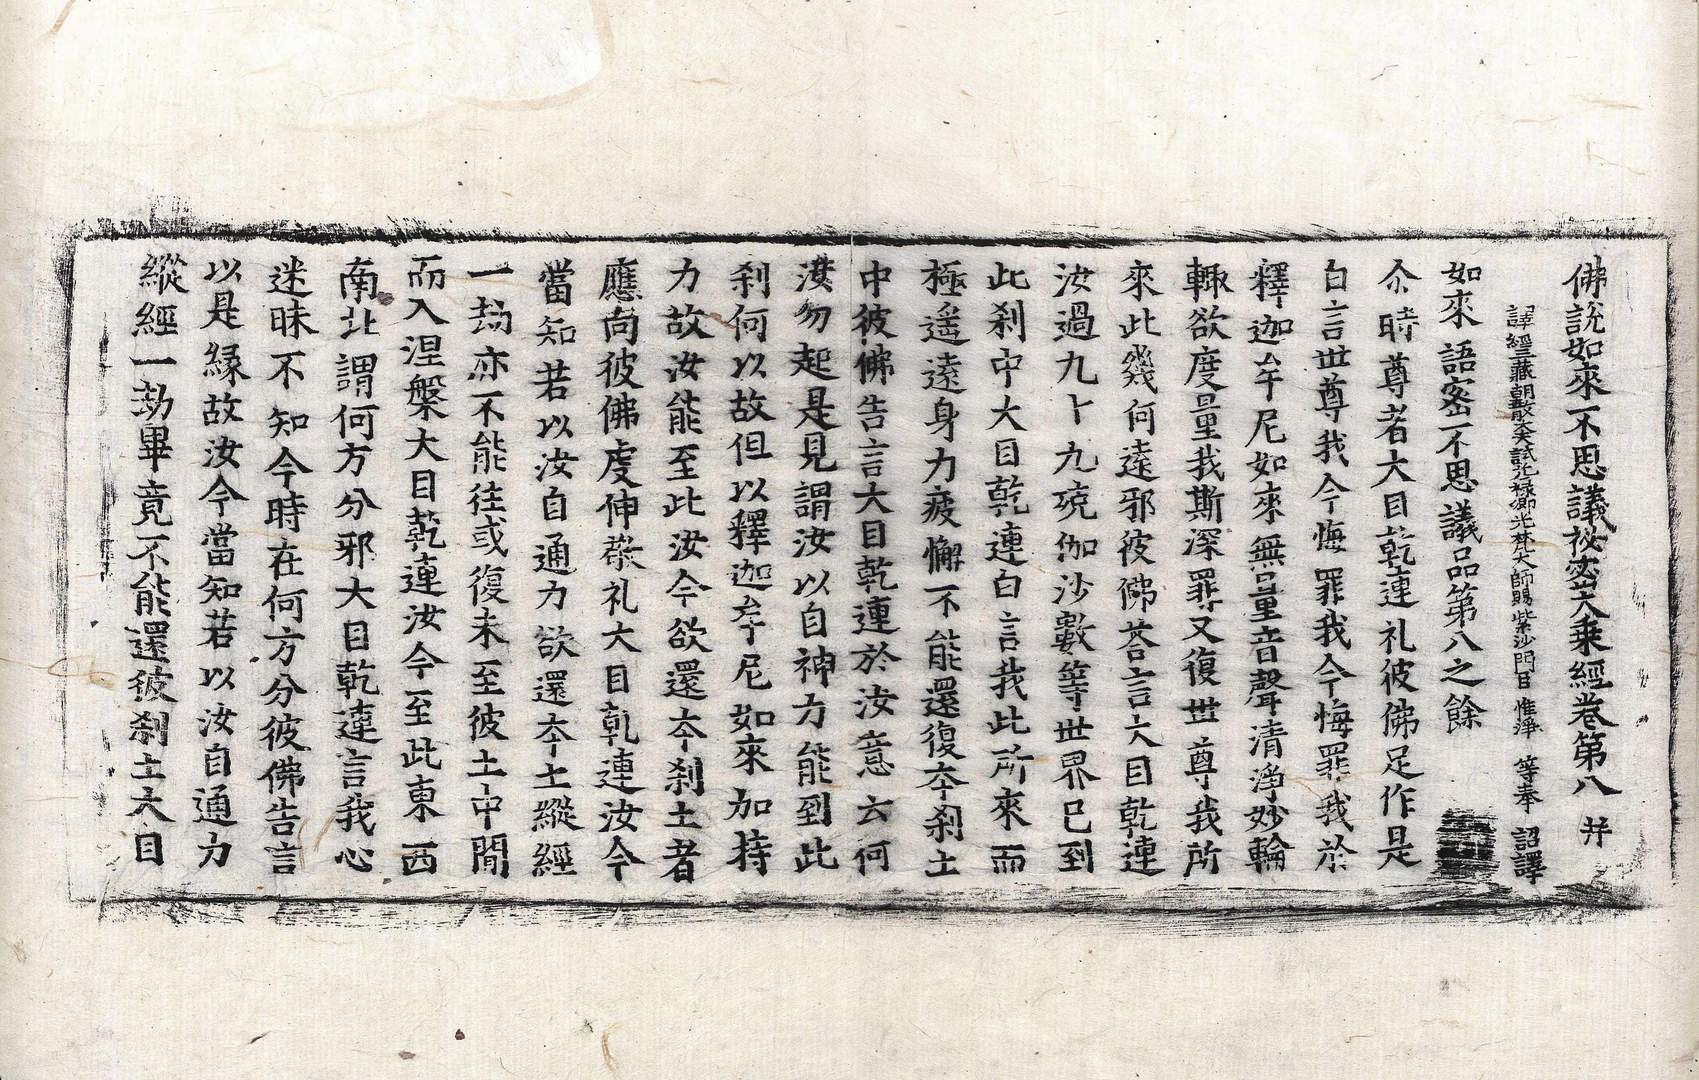 佛說如來不思議祕密大乘經卷第八 并
譯經三藏朝散大夫試光祿卿光梵大師賜紫沙門臣 惟淨 等奉 詔譯
如來語密不思議品第八之餘
尒時尊者大目乾連礼彼佛足作是
白言世尊我今悔罪我今悔罪我於
釋迦牟尼如來無量音聲清淨妙輪
輙欲度量我斯深罪又復世尊我所
來此幾何遠邪彼佛荅言大目乾連
汝過九十九殑伽沙數等世界已到
此刹中大目乾連白言我此所來而
極遥遠身力疲懈不能還復本刹土
中彼佛告言大目乾連於汝意云何
汝勿起是見謂汝以自神力能到此
刹何以故但以釋迦牟尼如來加持
力故汝能至此汝今欲還本刹土者
應向彼佛䖏伸恭礼大目乾連汝今
當知若以汝自通力欲還本土縱經
一劫亦不能往或復未至彼土中間
而入涅槃大目乾連汝今至此東西
南北謂何方分邪大目乾連言我心
迷昧不知今時在何方分彼佛告言
以是縁故汝今當知若以汝自通力
縱經一劫畢竟不能還彼刹土大目